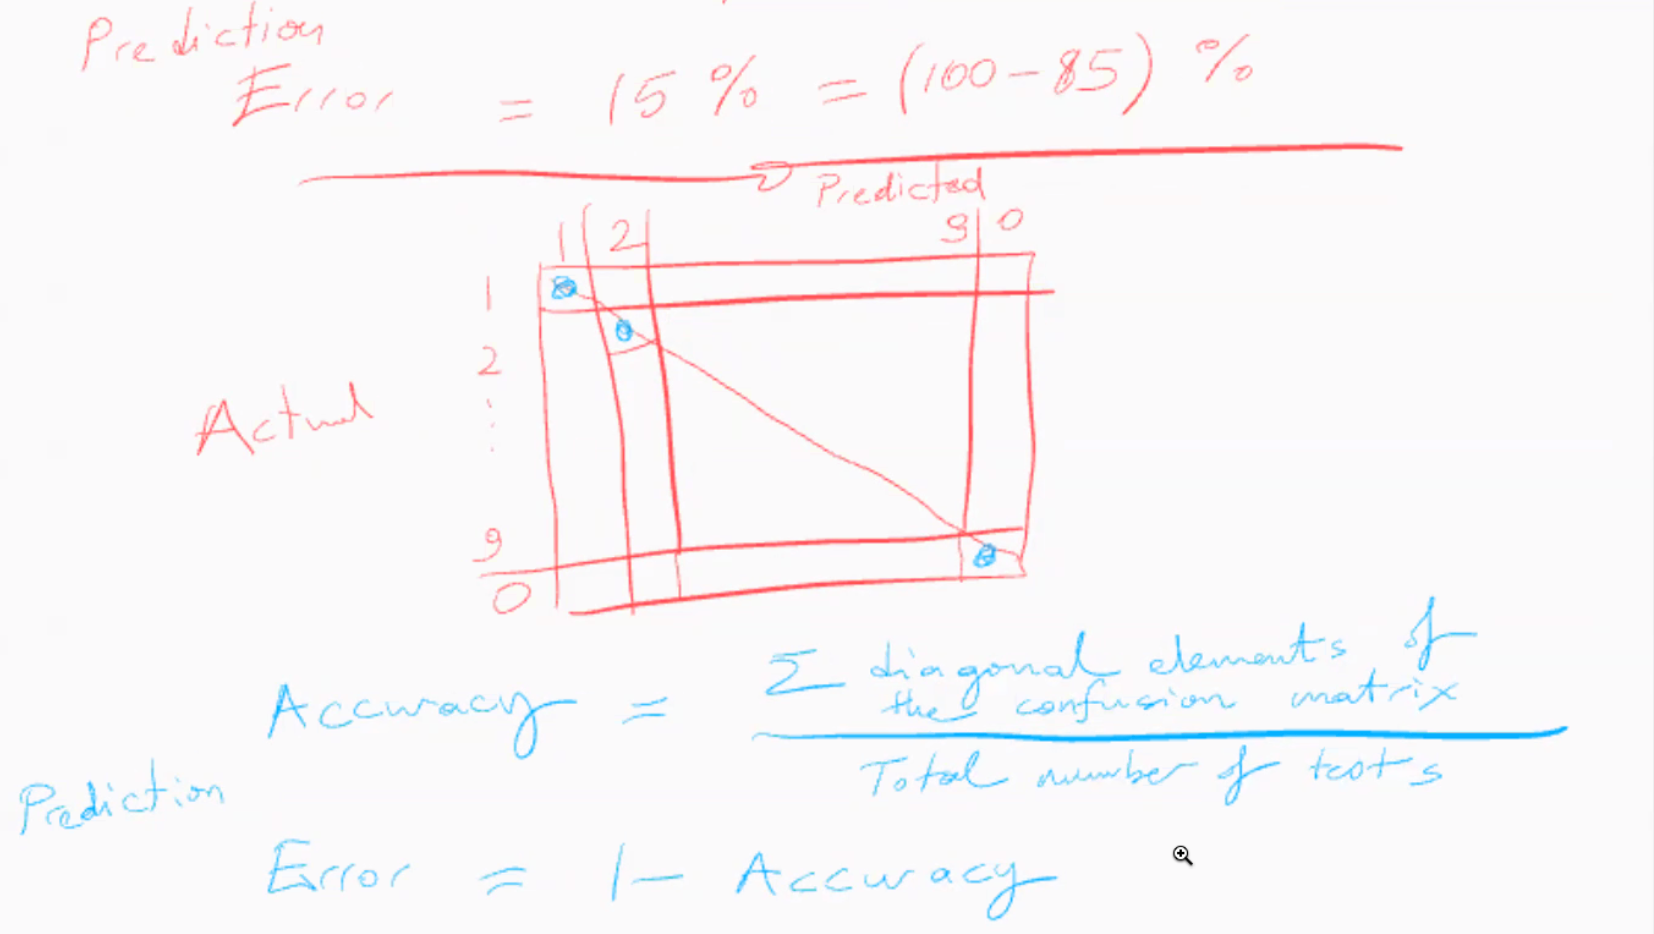 Prediction
Error = 15 % = (100-85) %
Predicted
1 2 9 0
1
2
Actual
9
0
Σ diagonal elements of
the confusion matrix
Accuracy =
Total number of tests
Prediction
Error = 1 - Accuracy